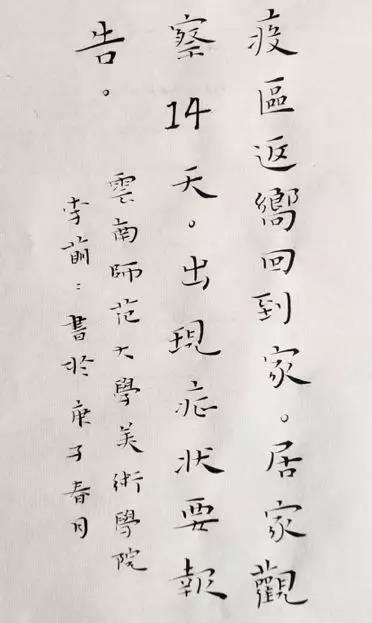 疫區返嚮回到家。居家觀
察14天。出現症状要報
告。
雲南师范大學美術學院
李前：書於庚子春月